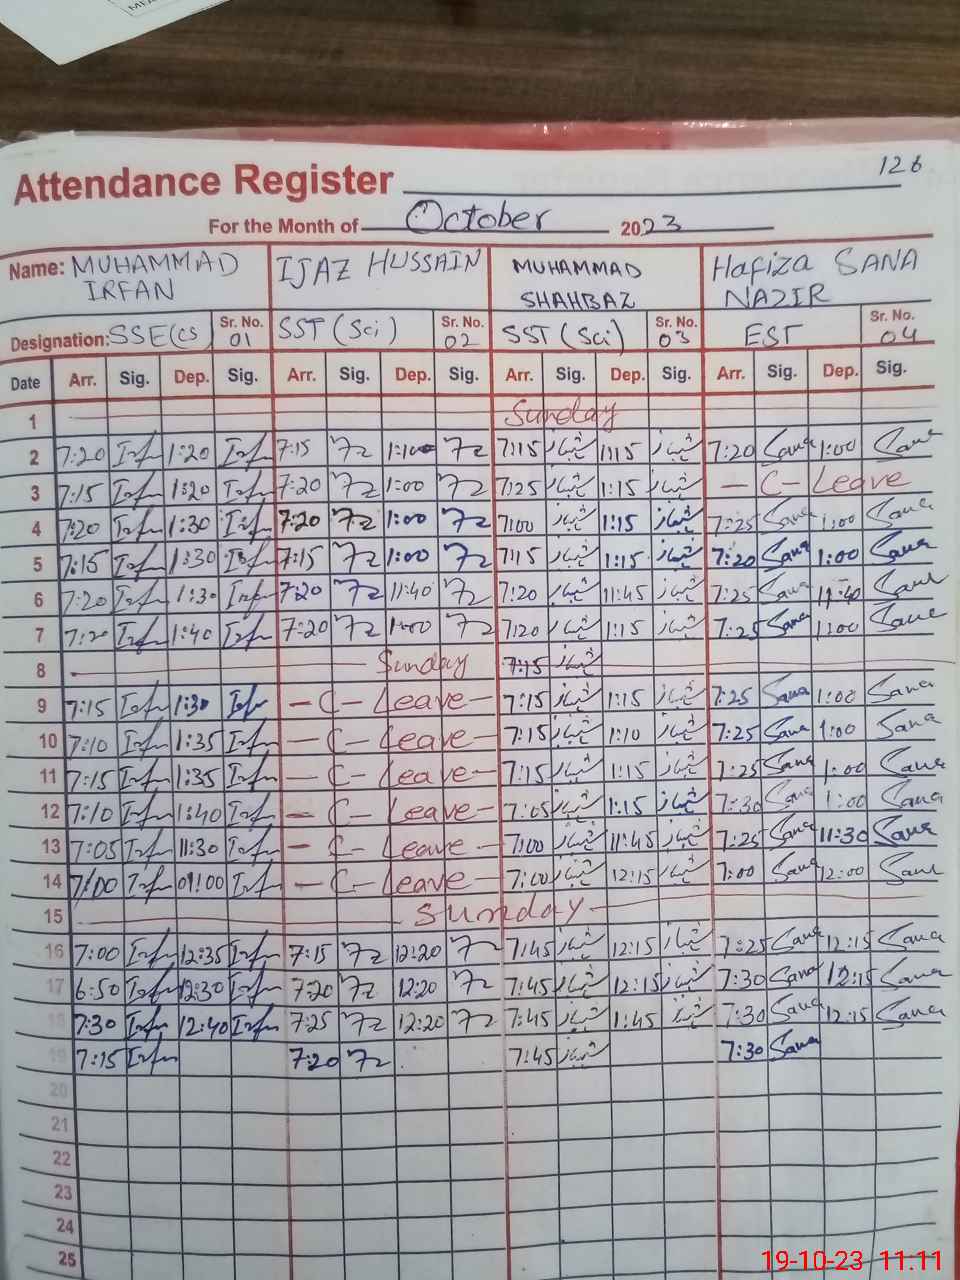 126
Attendance Register
For the Month of October 2023
Name: MUHAMMAD IRFAN IJAZ HUSSAIN MUHAMMAD SHAHBAZ Hafiza SANA NAZIR
Designation: SSE(CS) Sr. No. 01 SST (Sci) Sr. No. 02 SST (Sci) Sr. No. 03 EST Sr. No. 04
Date Arr. Sig. Dep. Sig. Arr. Sig. Dep. Sig. Arr. Sig. Dep. Sig. Arr. Sig. Dep. Sig.
1 Sunday
2 7:20 Irfn 1:20 Irfn 7:15 1:10 7:15 شہباز 1:15 شہباز 7:20 Sana 1:00 Sana
3 7:15 Irfn 1:20 Irfn 7:20 1:00 7:25 شہباز 1:15 شہباز - C - Leave
4 7:20 Irfn 1:30 Irfn 7:20 1:00 7:00 شہباز 1:15 شہباز 7:25 Sana 1:00 Sana
5 7:15 Irfn 1:30 Irfn 7:15 1:00 7:15 شہباز 1:15 شہباز 7:20 Sana 1:00 Sana
6 7:20 Irfn 1:30 Irfn 7:20 11:40 7:20 شہباز 11:45 شہباز 7:25 Sana 11:40 Sana
7 7:20 Irfn 1:40 Irfn 7:20 1:00 7:20 شہباز 1:15 شہباز 7:25 Sana 1:00 Sana
8 Sunday 7:15 شہباز
9 7:15 Irfn 1:30 Irfn - C - Leave - 7:15 شہباز 1:15 شہباز 7:25 Sana 1:00 Sana
10 7:10 Irfn 1:35 Irfn - C - Leave - 7:15 شہباز 1:10 شہباز 7:25 Sana 1:00 Sana
11 7:15 Irfn 1:35 Irfn - C - Leave - 7:15 شہباز 1:15 شہباز 7:25 Sana 1:00 Sana
12 7:10 Irfn 1:40 Irfn - C - Leave - 7:05 شہباز 1:15 شہباز 7:30 Sana 1:00 Sana
13 7:05 Irfn 11:30 Irfn - C - Leave - 7:00 شہباز 11:45 شہباز 7:25 Sana 11:30 Sana
14 7:00 Irfn 01:00 Irfn - C - Leave - 7:00 شہباز 12:15 شہباز 7:00 Sana 12:00 Sana
15 Sunday
16 7:00 Irfn 12:35 Irfn 7:15 12:20 7:45 شہباز 12:15 شہباز 7:25 Sana 12:15 Sana
17 6:50 Irfn 12:30 Irfn 7:20 12:20 7:45 شہباز 12:15 شہباز 7:30 Sana 12:15 Sana
18 7:30 Irfn 12:40 Irfn 7:25 12:20 7:45 شہباز 1:45 شہباز 7:30 Sana 12:15 Sana
19 7:15 Irfn 7:20 7:45 شہباز 7:30 Sana
20
21
22
23
24
25
19-10-23 11.11